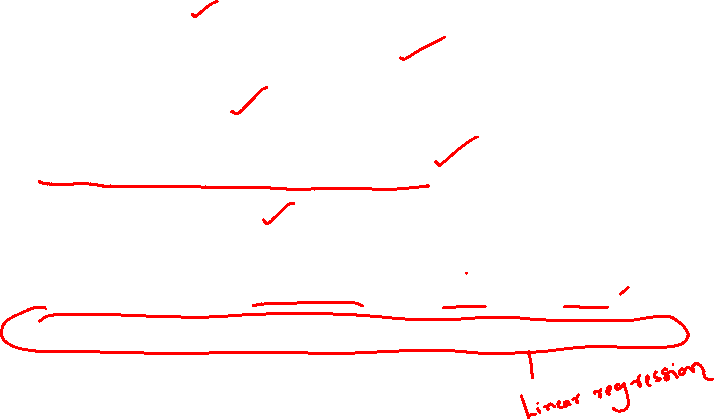 Linear regression